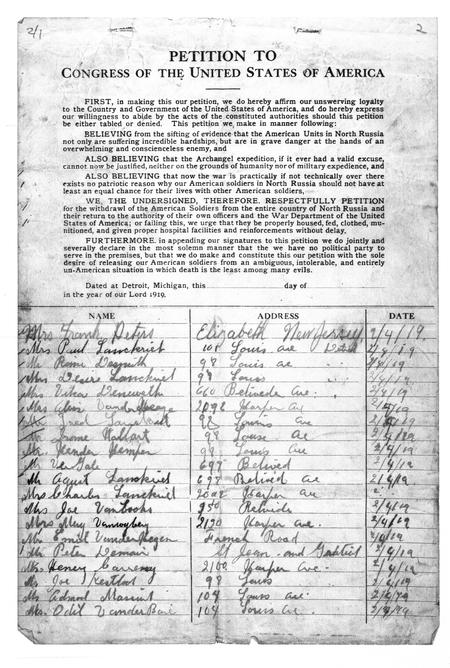 2/1
2
PETITION TO
CONGRESS OF THE UNITED STATES OF AMERICA
FIRST, in making this our petition, we do hereby affirm our unswerving loyalty
to the Country and Government of the United States of America, and do hereby express
our willingness to abide by the acts of the constituted authorities should this petition
be either tabled or denied. This petition we make in manner following:
BELIEVING from the sifting of evidence that the American Units in North Russia
not only are suffering incredible hardships, but are in grave danger at the hands of an
overwhelming and conscienceless enemy, and
ALSO BELIEVING that the Archangel expedition, if it ever had a valid excuse,
cannot now be justified, neither on the grounds of humanity nor of military expedience, and
ALSO BELIEVING that now the war is practically if not technically over there
exists no patriotic reason why our American soldiers in North Russia should not have at
least an equal chance for their lives with other American soldiers,
WE, THE UNDERSIGNED, THEREFORE, RESPECTFULLY PETITION
for the withdrawal of the American Soldiers from the entire country of North Russia and
their return to the authority of their own officers and the War Department of the United
States of America; or failing this, we urge that they be properly housed, fed, clothed, mu-
nitioned, and given proper hospital facilities and reinforcements without delay.
FURTHERMORE, in appending our signatures to this petition we do jointly and
severally declare in the most solemn manner that the we have no political party to
serve in the premises, but that we do make and constitute this our petition with the sole
desire of releasing our American soldiers from an ambiguous, intolerable, and entirely
un-American situation in which death is the least among many evils.
Dated at Detroit, Michigan, this day of
in the year of our Lord 1919.
NAME ADDRESS DATE
Mrs Frank Peters Elizabeth New Jersey 2/4/19.
Mrs Paul Lanckriet 108 Louis ave 2/4/19
Mr Remi Desmith 98 Louis ave 2/4/19
Mrs Desire Lanckriet 98 Louis 2/4/19
Mrs 660 Belvedere Ave. 2/4/19
Mrs 2092 Harper Av 2/4/19
Mr Fred 98 Louis ave 2/4/19
Mr Jrome 98 Louse av 2/4/19
Mr. 98 Louis ave 2/4/19
Mr Ver Gale 697 Belved 2/4/19
Mr August Lanckriet 697 Belived Ave 2/4/19
Mrs Charles Lanckriet 2092 Harper ave
Mrs Joe 2/4/19
Mrs Mey 2120 Harper ave. 2/4/19
Mr Emiel French Road
Mr Peter Demair St Jean and Gratiot 2/4/19
Mrs. Henery 2100 Harper Ave. 2/4/19
Mr Joe 98 Louis 2/4/19
Mr 104 Louis av. 2/4/19
Mrs. Odil 104 Louis Av. 2/4/19